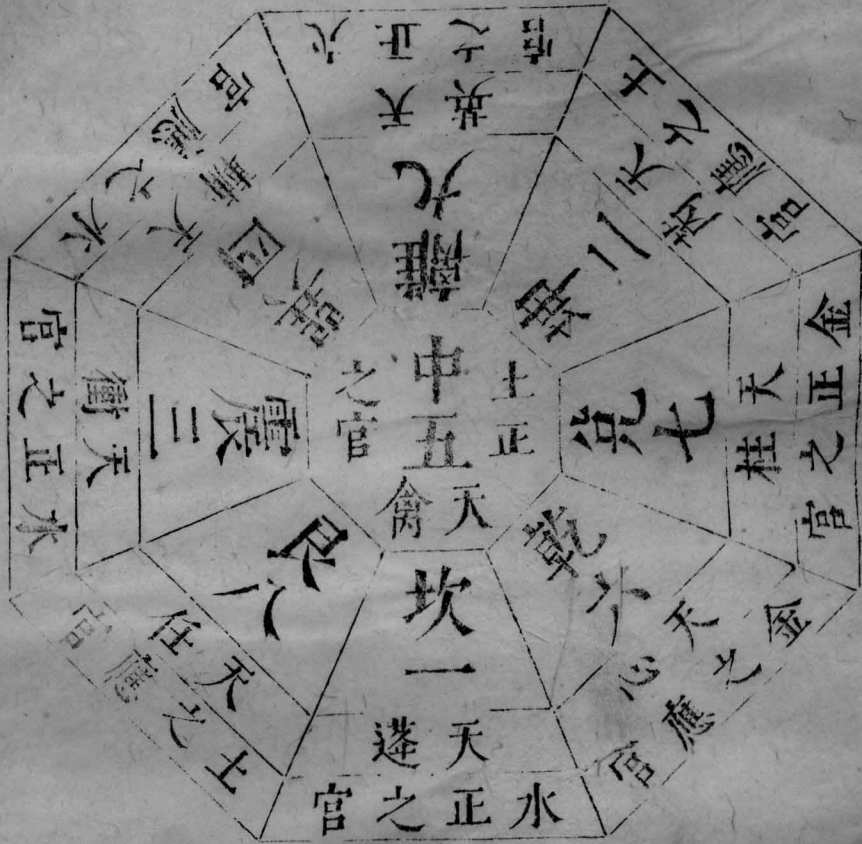 中五
天禽
土正之官
坎一
天蓬
水正之官
艮八
天任
土之應官
震三
天衝
木正之官
巽四
天輔
木之應官
離九
天英
火正之官
坤二
天芮
土之應官
兌七
天柱
金正之官
乾六
天心
金之應官